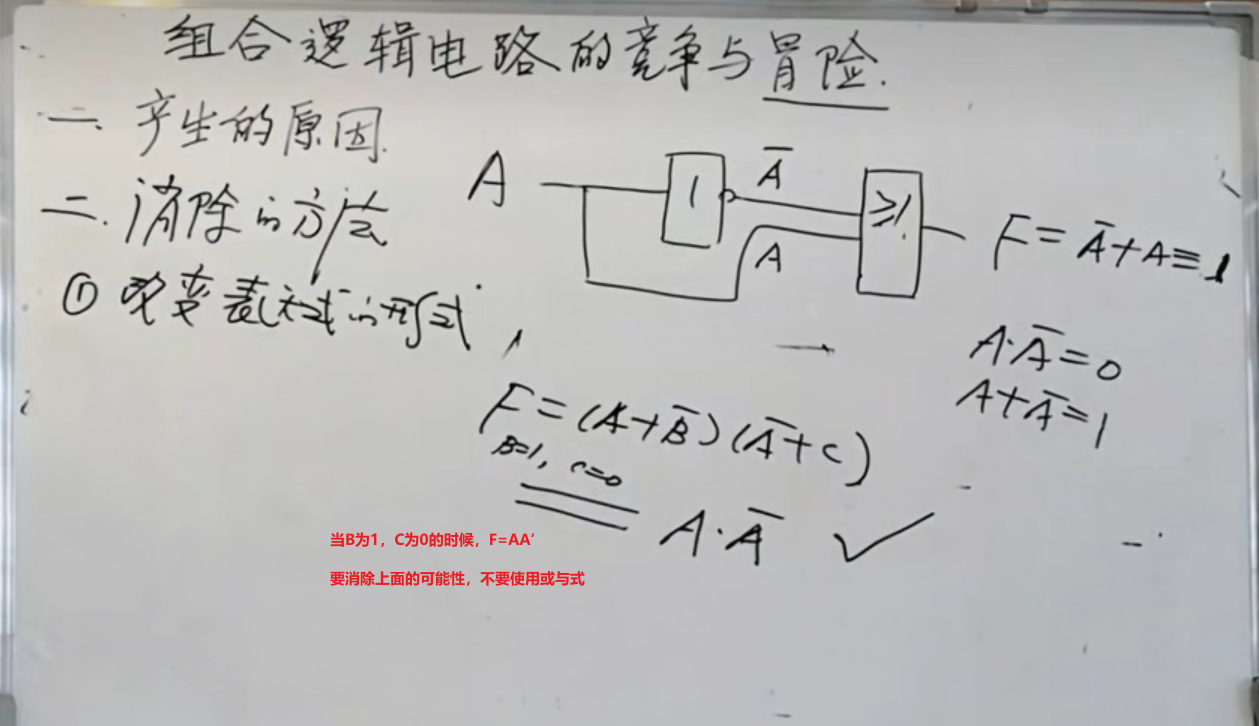 组合逻辑电路的竞争与冒险.
一. 产生的原因.
二. 消除的方法
① 改变表达式的形式
A
1
Ā
A
≥1
F = Ā + A ≡ 1
A·Ā = 0
A + Ā = 1
F = (A + B̄)(Ā + C)
B=1, C=0
A·Ā ✓
当B为1，C为0的时候，F=AA‘
要消除上面的可能性，不要使用或与式